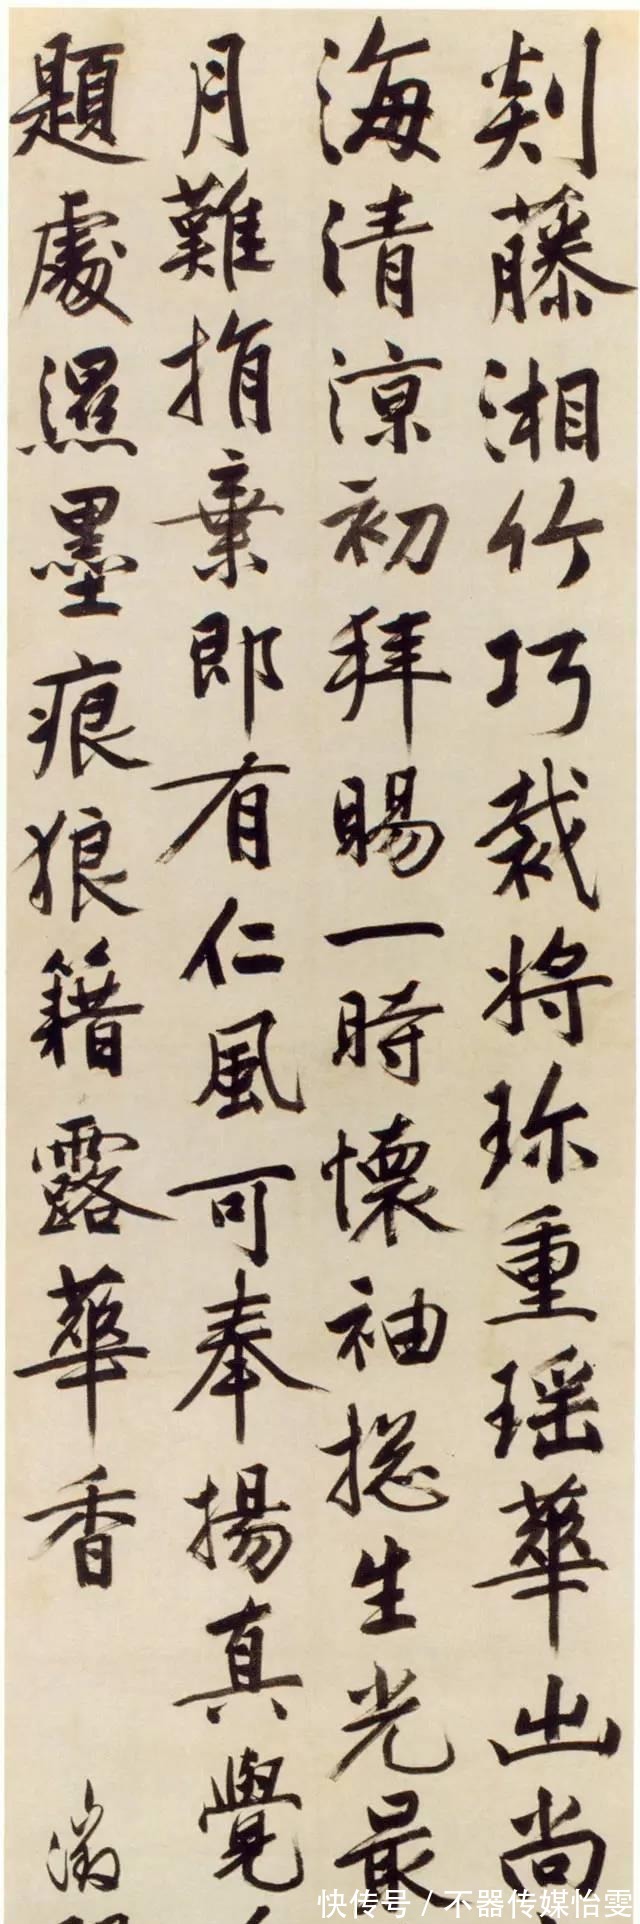 剡藤湘竹巧裁将珎重瑶華出尚
海清涼初拜賜一時懐袖捴生光最
月難捐棄即有仁風可奉揚真覺
題處濕墨痕狼籍露華香
徵明
快传号/不器传媒怡雯